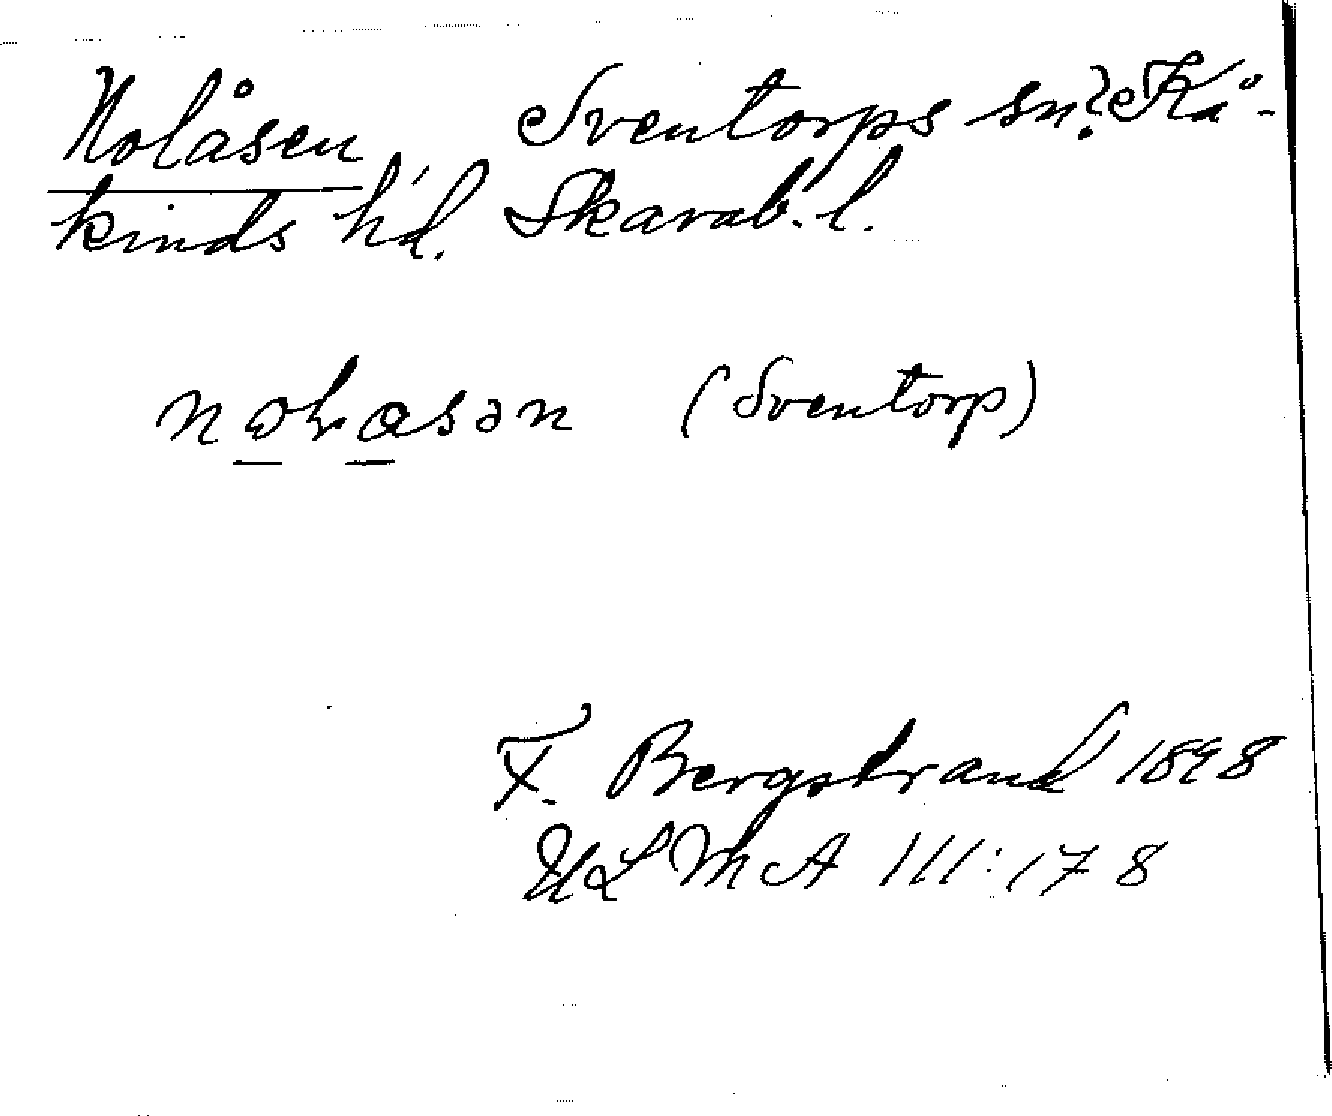 Nolåsen Sventorps sn? Kå-
kinds hd. Skarab. l.
(Sventorp)
F. Bergstrand 1898
ULMA 111:178